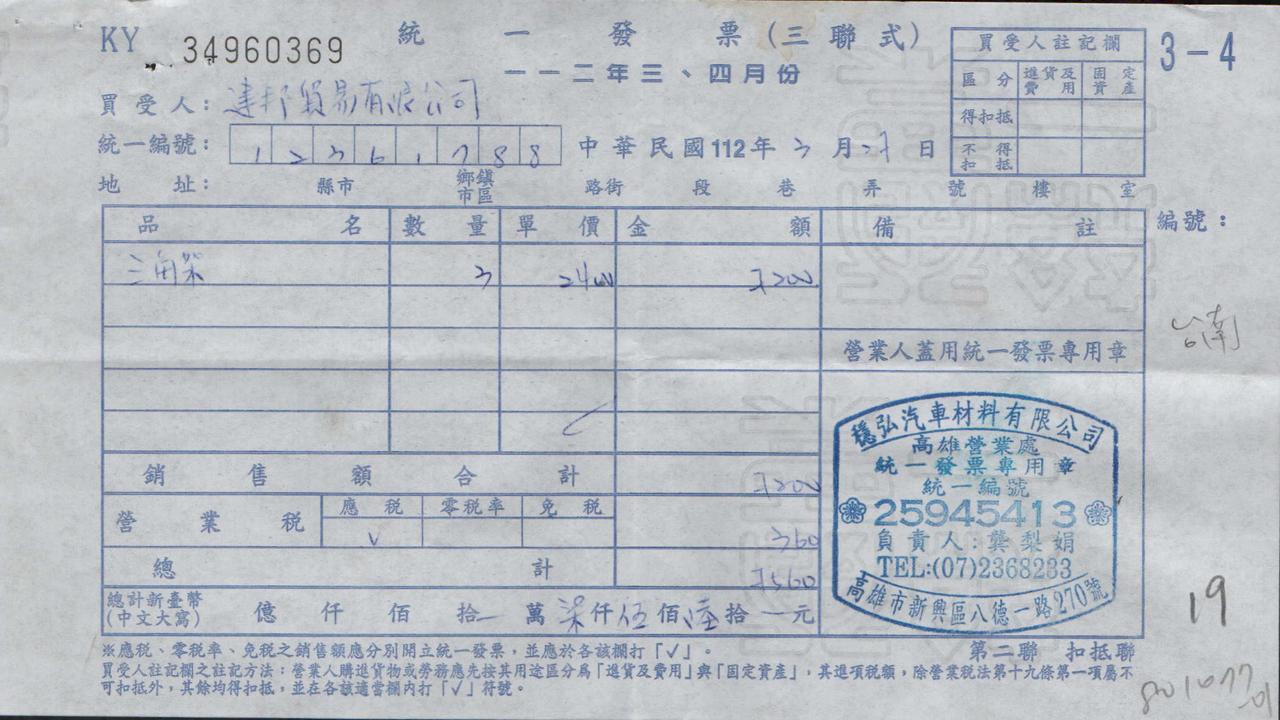 KY 34960369
統一發票(三聯式)
一一二年三、四月份
3-4
買受人註記欄
區分 進貨及費用 固定資產
得扣抵
不得扣抵
買受人:建邦貿易有限公司
統一編號: 12361788
中華民國112年3月27日
地址: 縣市 鄉鎮市區 路街 段 巷 弄 號 樓 室
品名 數量 單價 金額 備註 編號:
三角架 3 2400 7200
台南
營業人蓋用統一發票專用章
銷售額合計 7200
營業稅 應稅 零稅率 免稅
V 360
總計 7560
總計新臺幣(中文大寫) 億 仟 佰 拾 萬 柒仟 伍佰 陸拾 元
穩弘汽車材料有限公司
高雄營業處
統一發票專用章
統一編號
25945413
負責人:龔梨娟
TEL:(07)2368233
高雄市新興區八德一路270號
19
※應稅、零稅率、免稅之銷售額應分別開立統一發票,並應於各該欄打「✓」。
第二聯 扣抵聯
買受人註記欄之註記方法:營業人購進貨物或勞務應先按其用途區分為「進貨及費用」與「固定資產」,其進項稅額,除營業稅法第十九條第一項屬不
可扣抵外,其餘均得扣抵,並在各該適當欄內打「✓」符號。